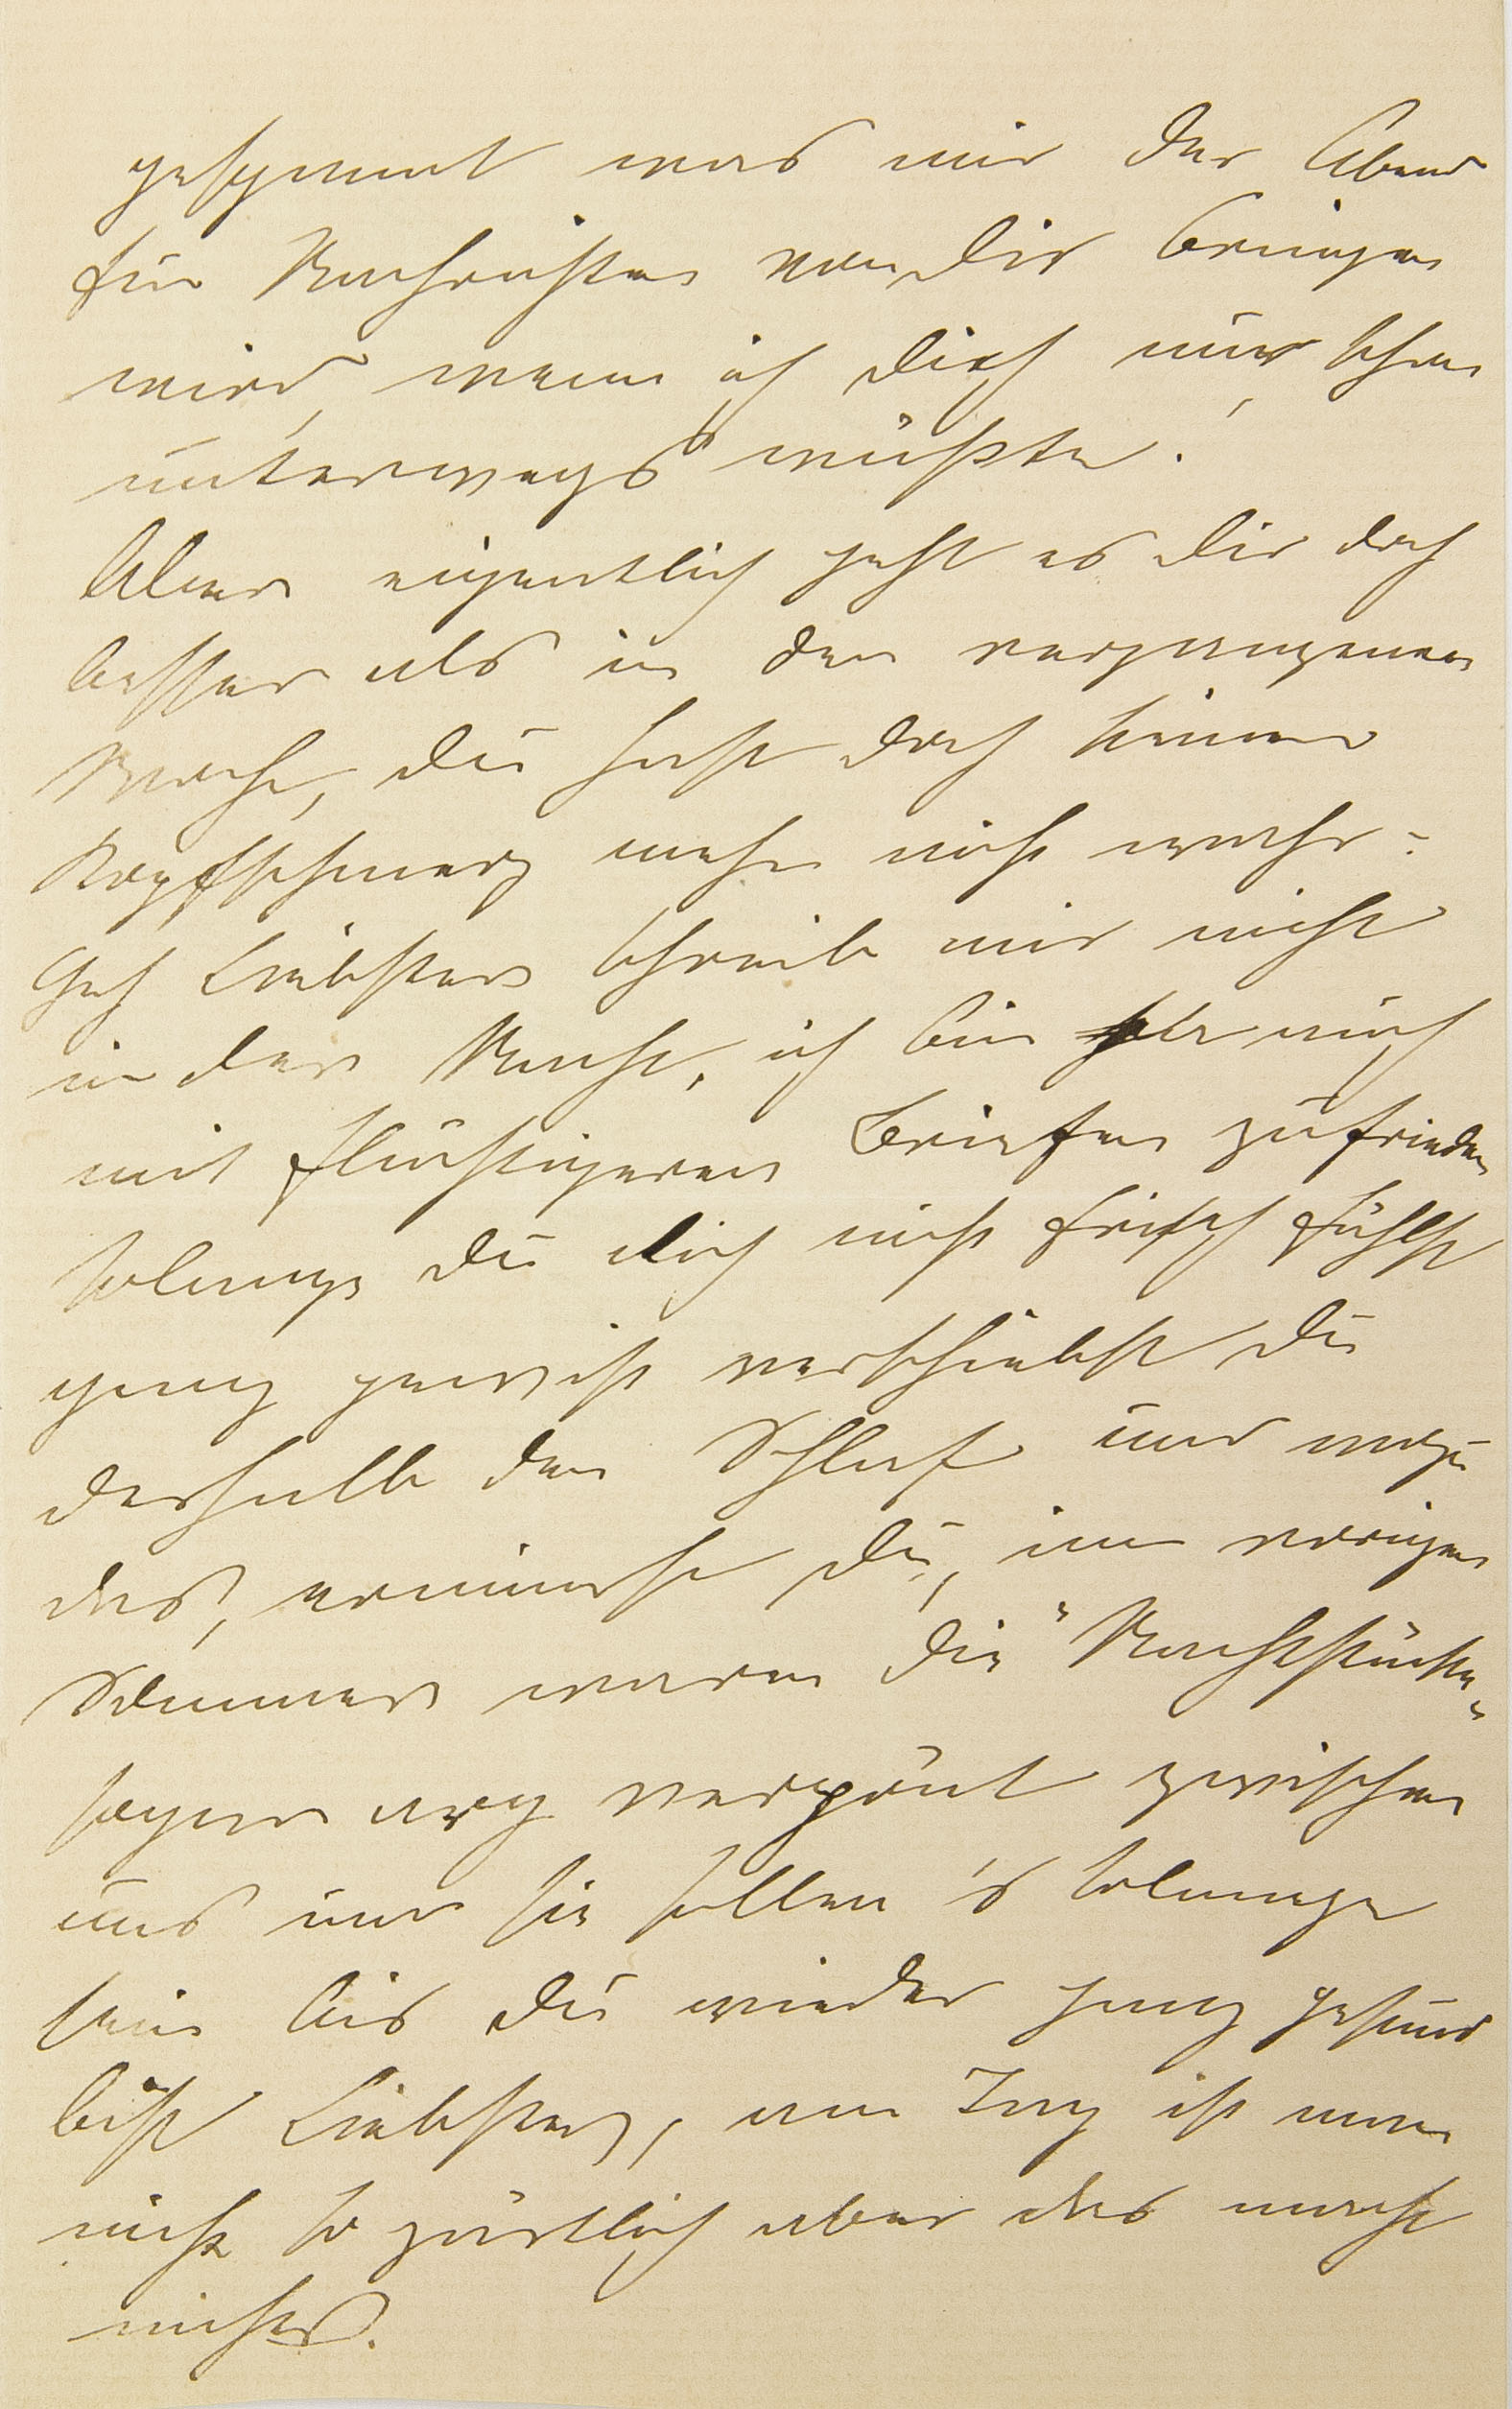 gespannt was mir der Abend
für Nachrichten von Dir bringen
wird, wenn ich Dich nur schon
unterwegs wüßte!
Aber eigentlich geht es Dir doch
besser als in der vergangenen
Woche, Du hast doch keinen
Kopfschmerz mehr nicht wahr?
Geh Liebster schreib mir nicht
in der Nacht, ich bin ja auch
mit flüchtigeren Briefen zufrieden
solange Du Dich nicht frisch fühlst
ganz gewiß verschiebst Du
deshalb den Schlaf und wozu
das, erinnerst Du, im vorigen
Sommer waren die "Nachtstücke"
sogar arg verpönt zwischen
uns und sie sollen 's solange
sein bis Du wieder ganz gesund
bist Liebster, am Tag ist man
nicht so zärtlich aber das macht
nichts.